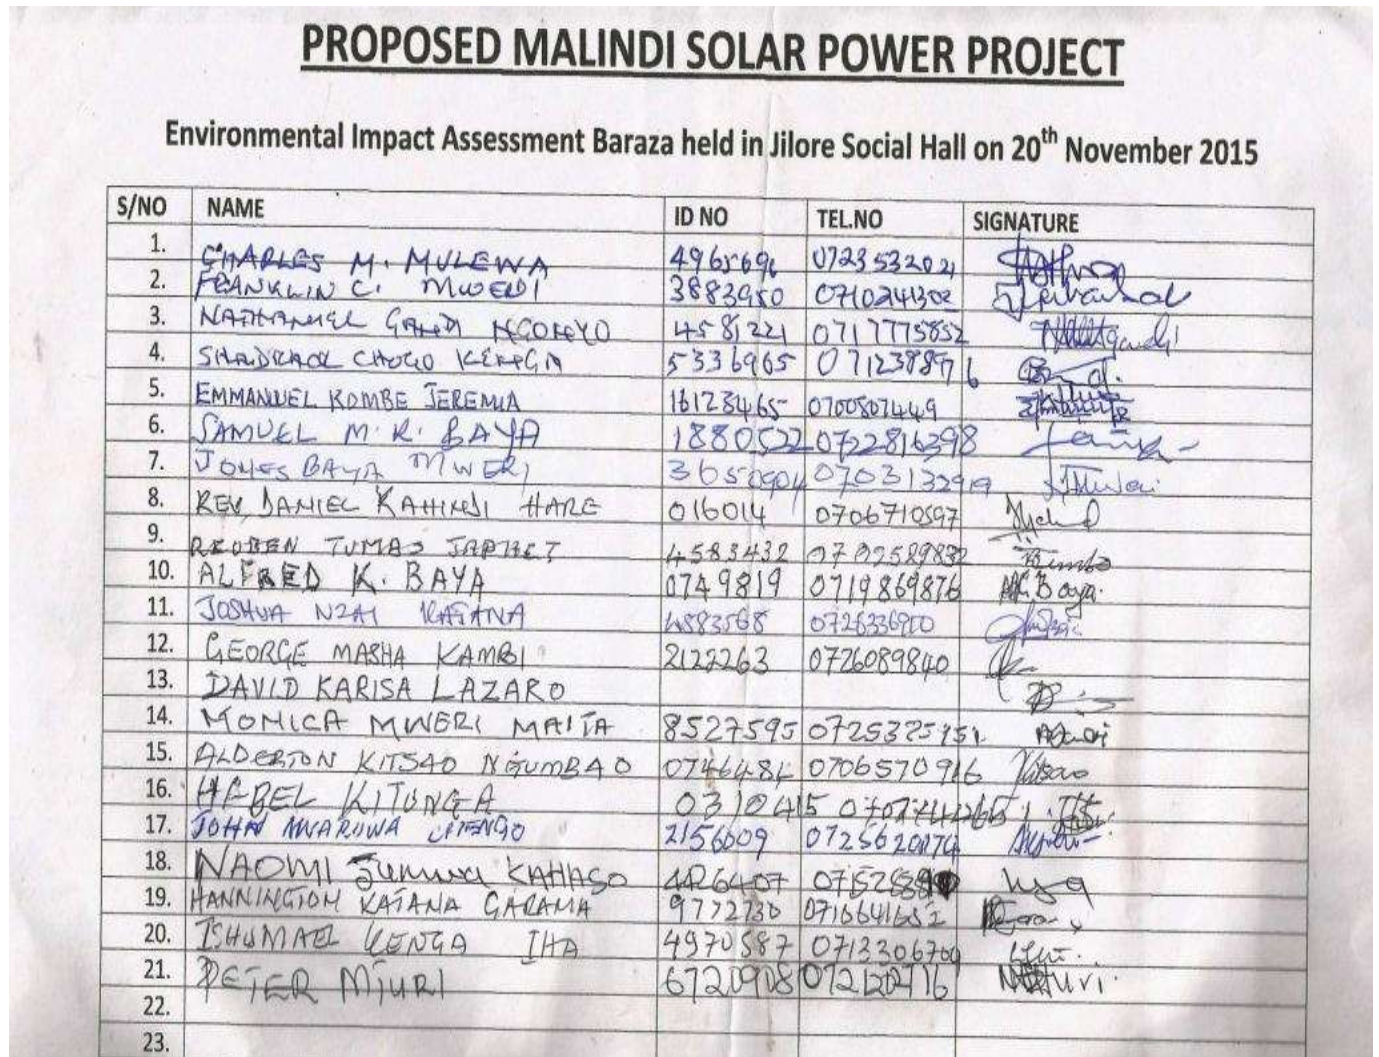 PROPOSED MALINDI SOLAR POWER PROJECT
Environmental Impact Assessment Baraza held in Jilore Social Hall on 20th November 2015
S/NO NAME ID NO TEL.NO SIGNATURE
1. CHARLES M. MULEWA 4965696 0723532021
2. FRANKLIN C. MWERI 3883950 0710241302
3. NATHANIEL GANDI NGONYO 4581221 0717775852
4. SHADRACK CHOGO KENGA 5336965 0712388976
5. EMMANUEL KOMBE JEREMIA 16123465 0700507449
6. SAMUEL M.R. BAYA 1880522 0722816398
7. JONES BAYA MWERI 3650904 0703132919
8. REV. DANIEL KAHINDI HARE 016014 0706710597
9. REUBEN TUMBO JAPHET 4583432 0702589832
10. ALFRED K. BAYA 0749819 0719869876 AK. Baya.
11. JOSHUA NZAI KATANA 4583568 0726336900
12. GEORGE MASHA KAMBI 2122263 0726089840
13. DAVID KARISA LAZARO
14. MONICA MWERI MAITA 8527595
15. ALDERTON KITSAO NGUMBAO 0706570916 Kitsao
16. HEBEL KITUNGA
17. JOHN MWARUWA 2156009
18. NAOMI KAHASO
19. HANNINGTON KATANA GARAMA 9772730 0710641652
20. ISHUMAEL KENGA IHA 4970587 0713306700
21. PETER MJURI 6720908
22.
23.